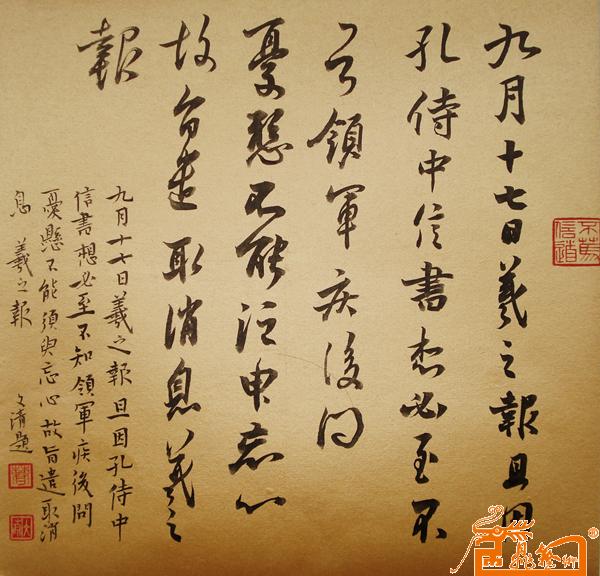 九月十七日羲之報且因
孔侍中信書想必至不
知領軍疾後問
憂懸不能須臾忘心
故旨遣取消息羲之
報
九月十七日羲之報且因孔侍中
信書想必至不知領軍疾後問
憂懸不能須臾忘心故旨遣取消
息羲之報
文清題
不篤
信道